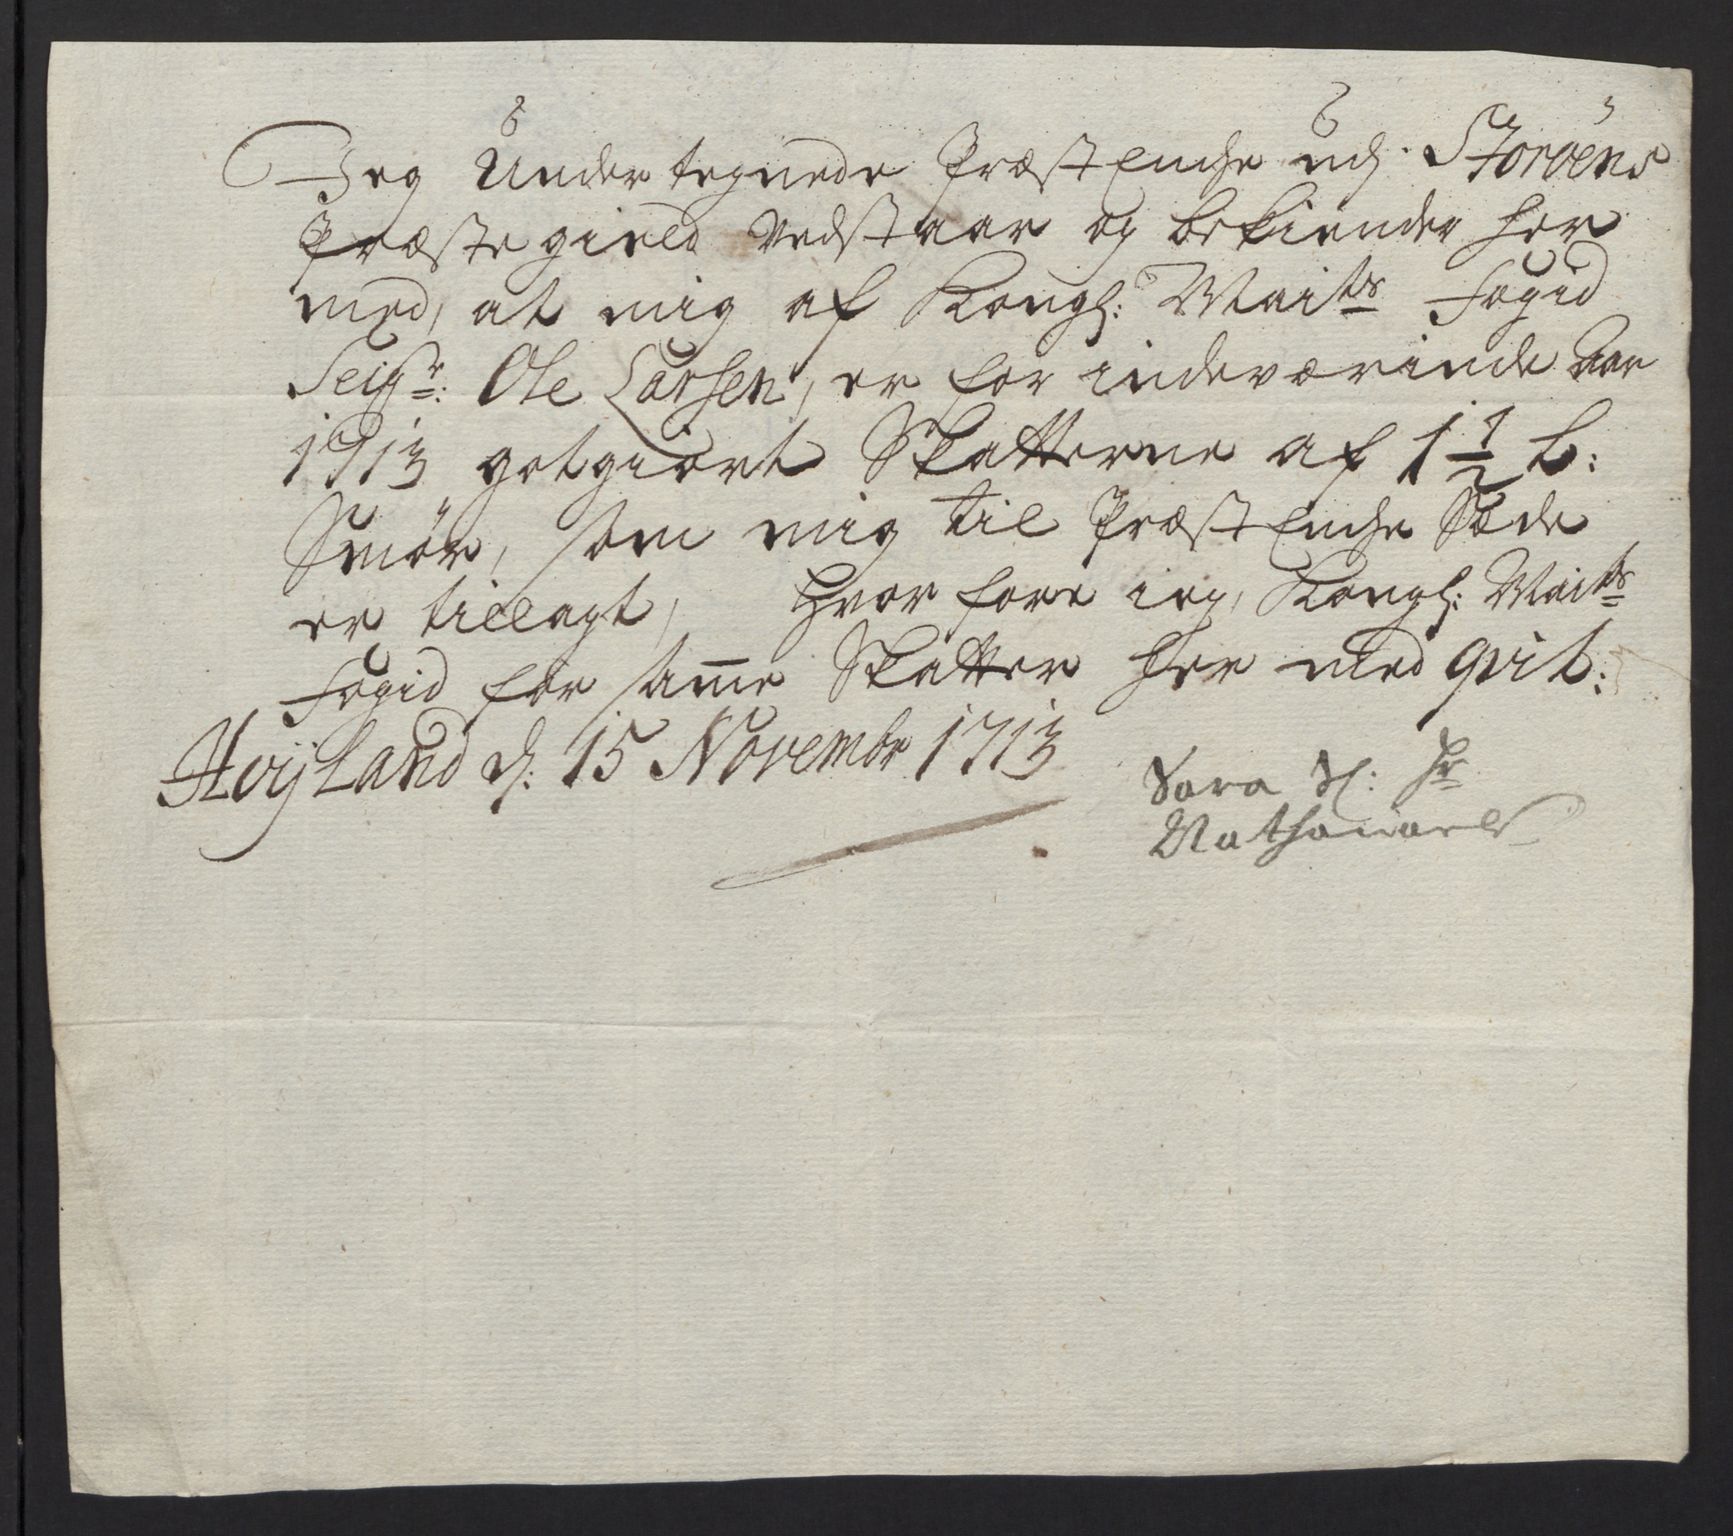 Jeg Undertegnede PræstEnche udj Storøens
Præstegield Vedstaar og bekiender her
med, at mig af Kongl: Maits Fogid
Seigr: Ole Larsen, er for indeværinde Aar
1713 gotgiort Skatterne af 1 1/2 L:
Smør, som mig til PræstEnche Sæde
er tillagt, Hvor fore ieg, Kongl: Maits
Fogid for same Skatter her med qvit:
Høijland d: 15 Novembr 1713
Sara Sl: Hr
Nathanaels